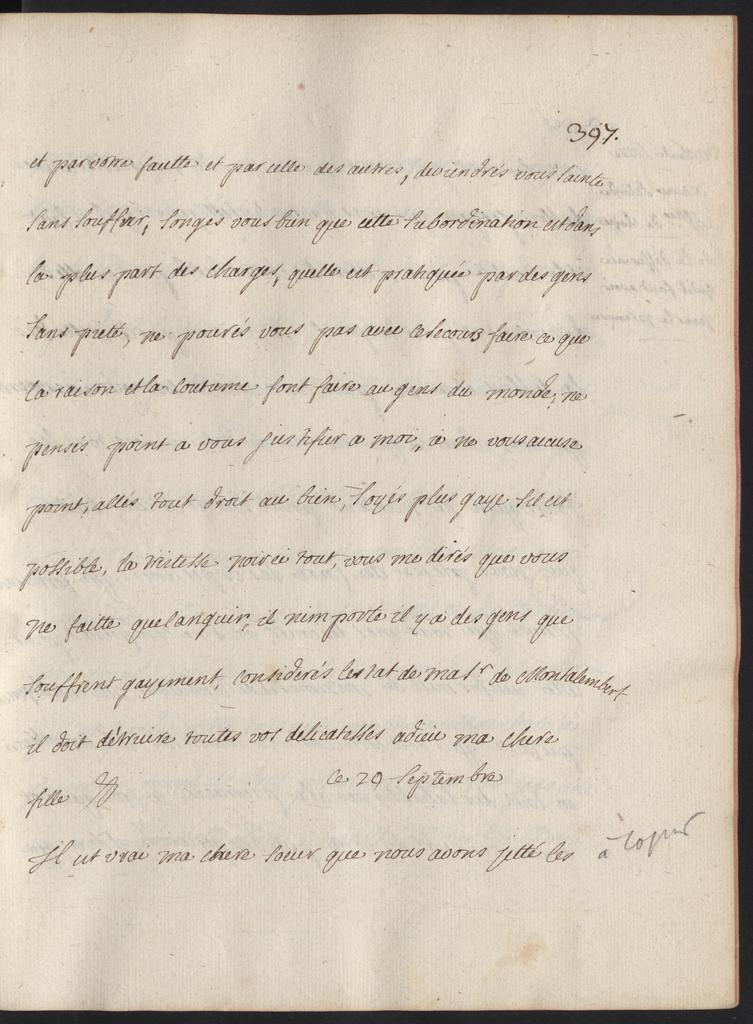 397.
et par votre faulte et par celle des autres, deviendrés vous sainte
sans souffrir, songés vous bien que cette subordination est dans
la plus part des charges, quelle est pratiquée par des gens
sans pieté, ne pourés vous pas avec ce secours faire ce que
la raison et la coutume font faire au gens du monde, ne
pensés point a vous justifier a moi, ie ne vous accuse
point, allés tout droit au bien, soyés plus gaye sil est
possible, la tristesse noircie tout, vous me dirés que vous
ne faitte que languir, il nimporte il y a des gens qui
souffrent gayement, considerés lestat de ma sr de Montalembert
il doit détruire toutes vos delicatesses adieu ma chere
fille
ce 29 septembre
Il est vrai ma chere soeur que nous avons jetté les
à copier